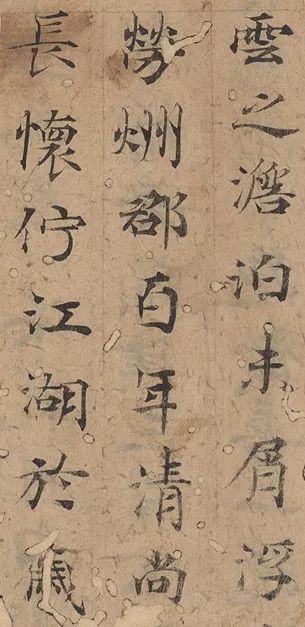 雲之澹泊未屑浮
勞州郡百年清尚
長懷佇江湖於